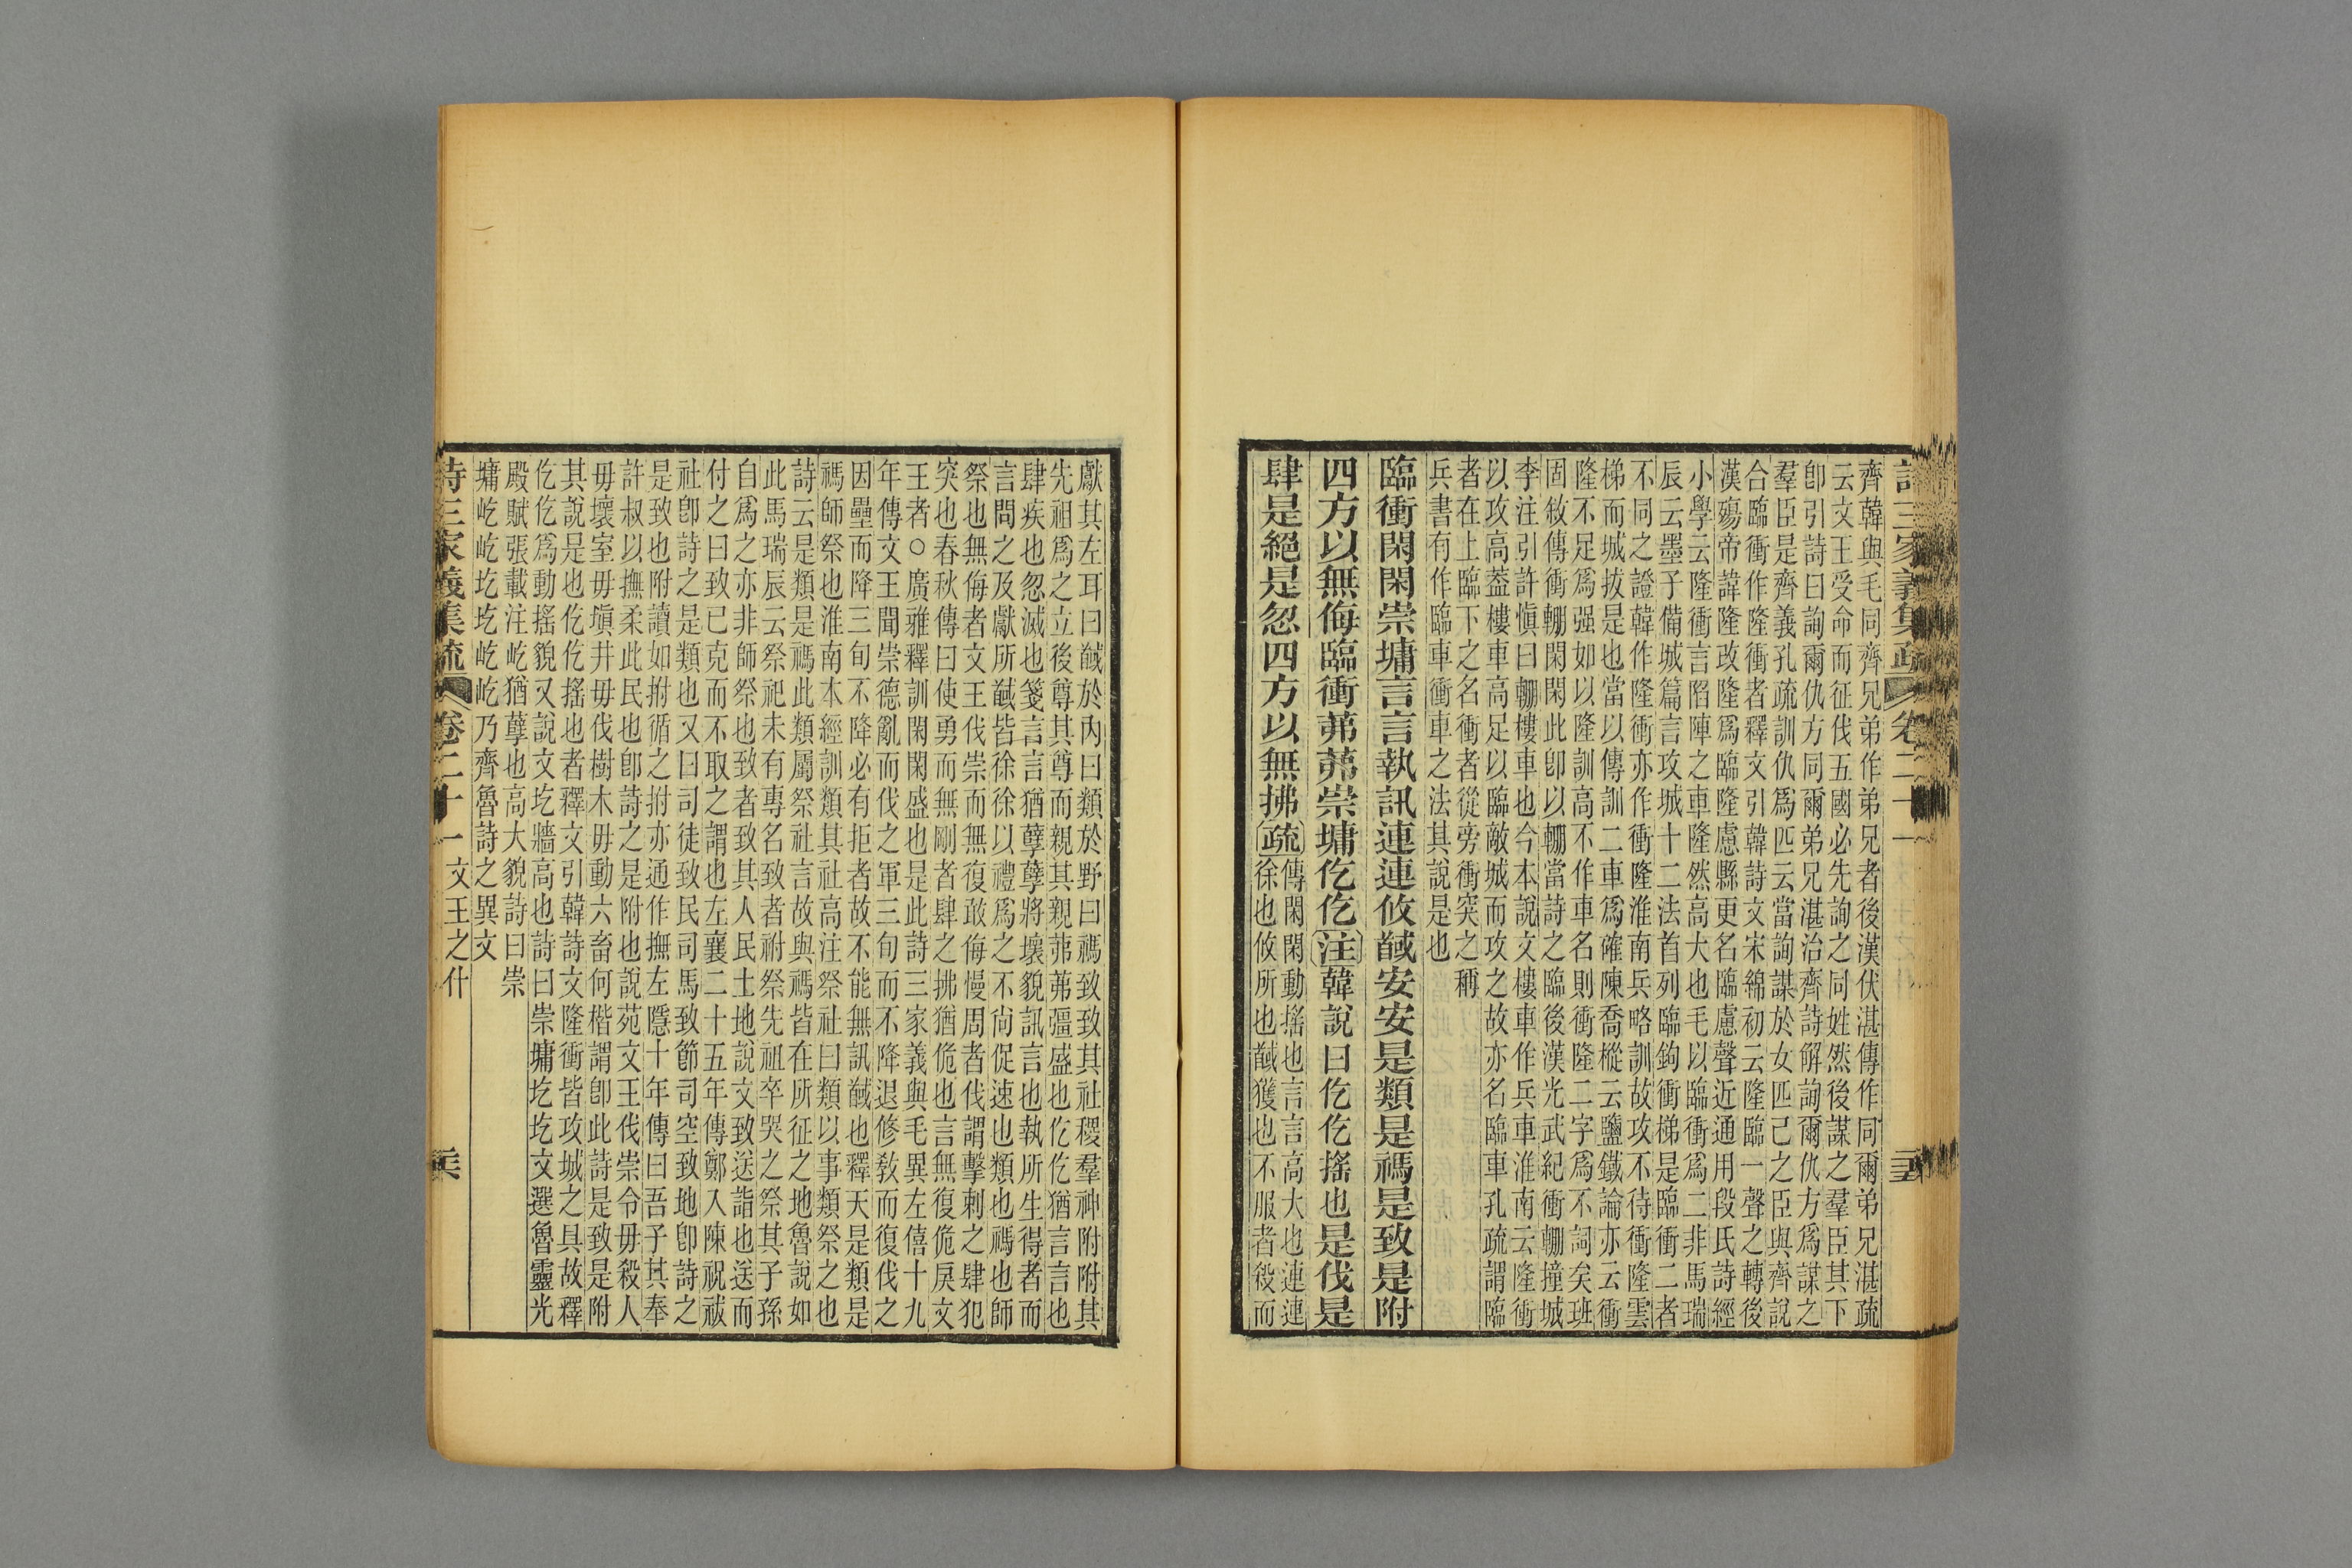 詩三家義集疏 卷二十一
齊韓與毛同齊兄弟作弟兄者後漢伏湛傳作同爾弟兄湛疏
云文王受命而征伐五國必先詢之同姓然後謀之羣臣其下
卽引詩曰詢爾仇方同爾弟兄湛治齊詩解詢爾仇方爲謀之
羣臣是齊義孔疏訓仇爲匹云當詢謀於女匹己之臣與齊說
合臨衝作隆衝者釋文引韓詩文宋綿初云隆臨一聲之轉後
漢殤帝諱隆改隆爲臨隆慮縣更名臨慮聲近通用段氏詩經
小學云隆衝言陷陣之車隆然高大也毛以臨衝爲二非馬瑞
辰云墨子備城篇言攻城十二法首列臨鉤衝梯是臨衝二者
不同之證韓作隆衝亦作衝隆淮南兵略訓故攻不待衝隆雲
梯而城拔是也當以傳訓二車爲確陳喬樅云鹽鐵論亦云衝
隆不足爲强如以隆訓高不作車名則衝隆二字爲不詞矣班
固敘傳衝輣閑閑此卽以輣當詩之臨後漢光武紀衝輣撞城
李注引許愼曰輣樓車也今本說文樓車作兵車淮南云隆衝
以攻高葢樓車高足以臨敵城而攻之故亦名臨車孔疏謂臨
者在上臨下之名衝者從旁衝突之稱
兵書有作臨車衝車之法其說是也
臨衝閑閑崇墉言言執訊連連攸馘安安是類是禡是致是附
四方以無侮臨衝茀茀崇墉仡仡注韓說曰仡仡搖也是伐是
肆是絕是忽四方以無拂疏傳閑閑動搖也言言高大也連連
徐也攸所也馘獲也不服者殺而
獻其左耳曰馘於內曰類於野曰禡致致其社稷羣神附附其
先祖爲之立後尊其尊而親其親茀茀彊盛也仡仡猶言言也
肆疾也忽滅也箋言言猶孽孽將壞貌訊言也執所生得者而
言問之及獻所馘皆徐徐以禮爲之不尚促速也類也禡也師
祭也無侮者文王伐崇而無復敢侮慢周者伐謂擊刺之肆犯
突也春秋傳曰使勇而無剛者肆之拂猶佹也言無復佹戾文
王者○廣雅釋訓閑閑盛也是此詩三家義與毛異左僖十九
年傳文王聞崇德亂而伐之軍三旬而不降退修敎而復伐之
因壘而降三旬不降必有拒者故不能無訊馘也釋天是類是
禡師祭也淮南本經訓類其社高注祭社曰類以事類祭之也
詩云是類是禡此類屬祭社言故與禡皆在所征之地魯說如
此馬瑞辰云祭祀未有專名致者祔祭先祖卒哭之祭其子孫
自爲之亦非師祭也致者致其人民土地說文致送詣也送而
付之曰致已克而不取之謂也左襄二十五年傳鄭入陳祝祓
社卽詩之是類也又曰司徒致民司馬致節司空致地卽詩之
是致也附讀如拊循之拊亦通作撫左隱十年傳曰吾子其奉
許叔以撫柔此民也卽詩之是附也說苑文王伐崇令毋殺人
毋壞室毋塡井毋伐樹木毋動六畜何楷謂卽此詩是致是附
其說是也仡仡搖也者釋文引韓詩文隆衝皆攻城之具故釋
仡仡爲動搖貌又說文圪牆高也詩曰崇墉圪圪文選魯靈光
殿賦張載注屹猶孽也高大貌詩曰崇
墉屹屹圪圪屹屹乃齊魯詩之異文
詩三家義集疏 卷二十一 文王之什